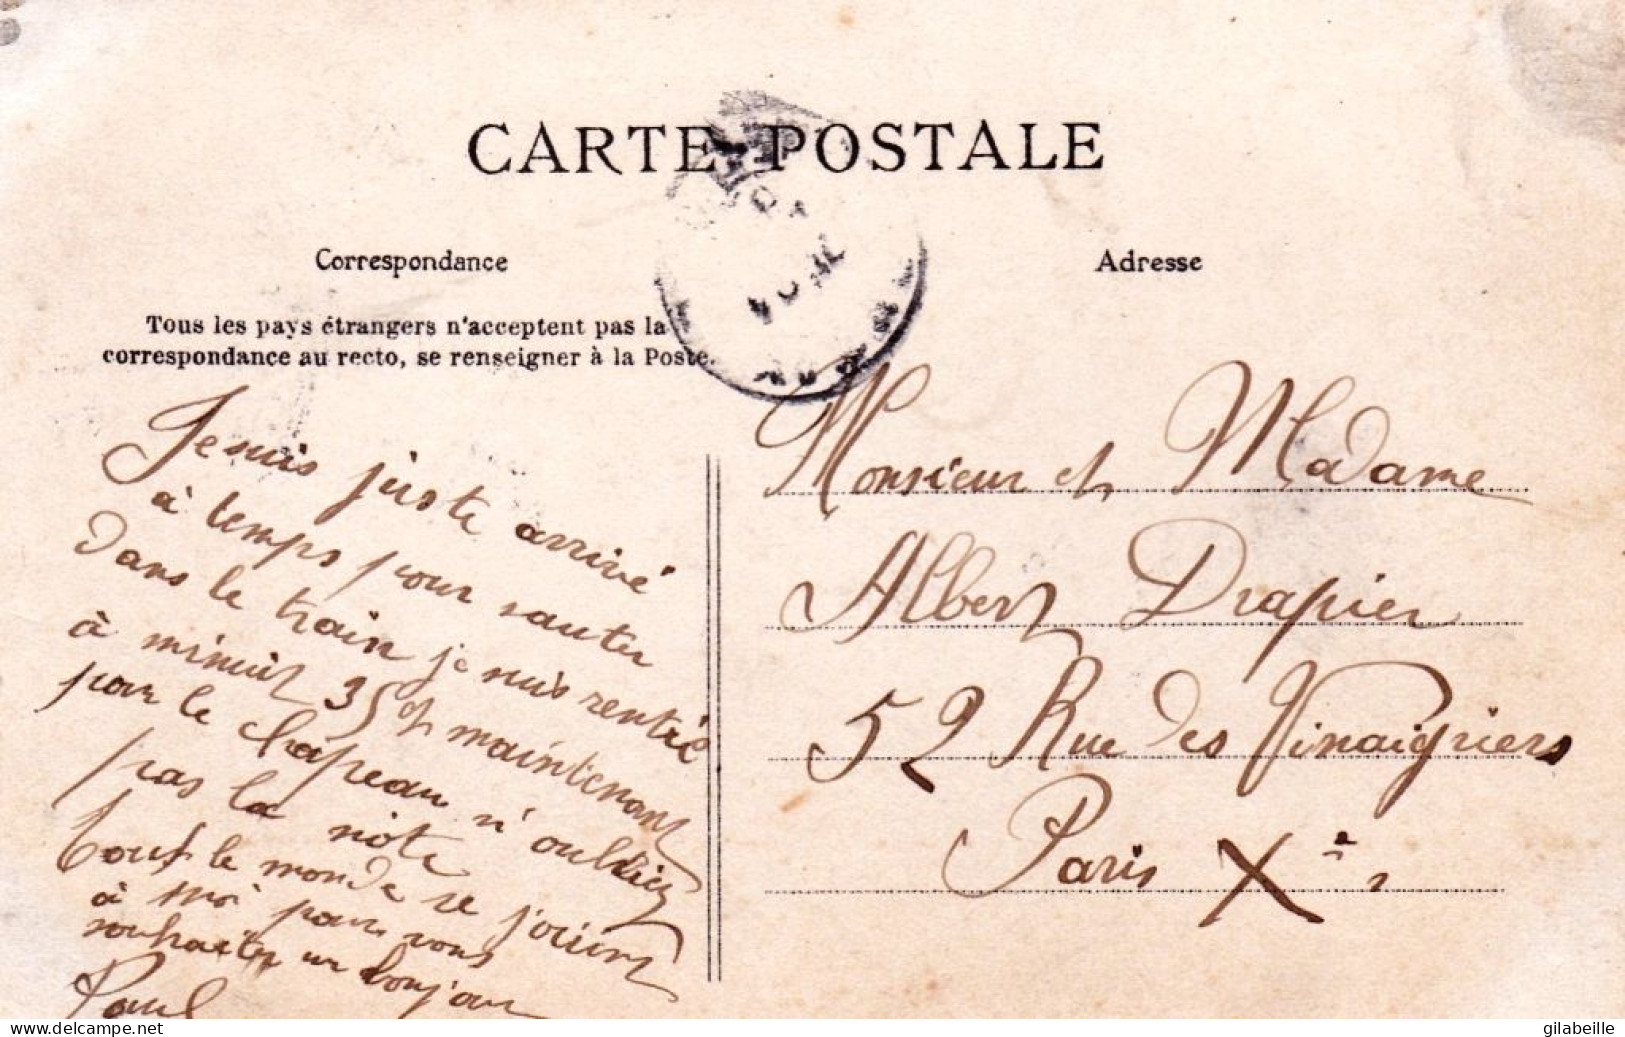 CARTE POSTALE
Correspondance
Adresse
Tous les pays étrangers n'acceptent pas la
correspondance au recto, se renseigner à la Poste.
Je suis juste arrivé
à temps pour sauter
dans le train je suis rentré
à minuit 35 et maintenant
pour le chapeau n'oubliez
pas la note
tout le monde se joint
à moi pour vous
souhaiter un bonjour
Paul
Monsieur et Madame
Albert Drapier
52 Rue des Vinaigriers
Paris Xe
delcampe.net
gilabeille